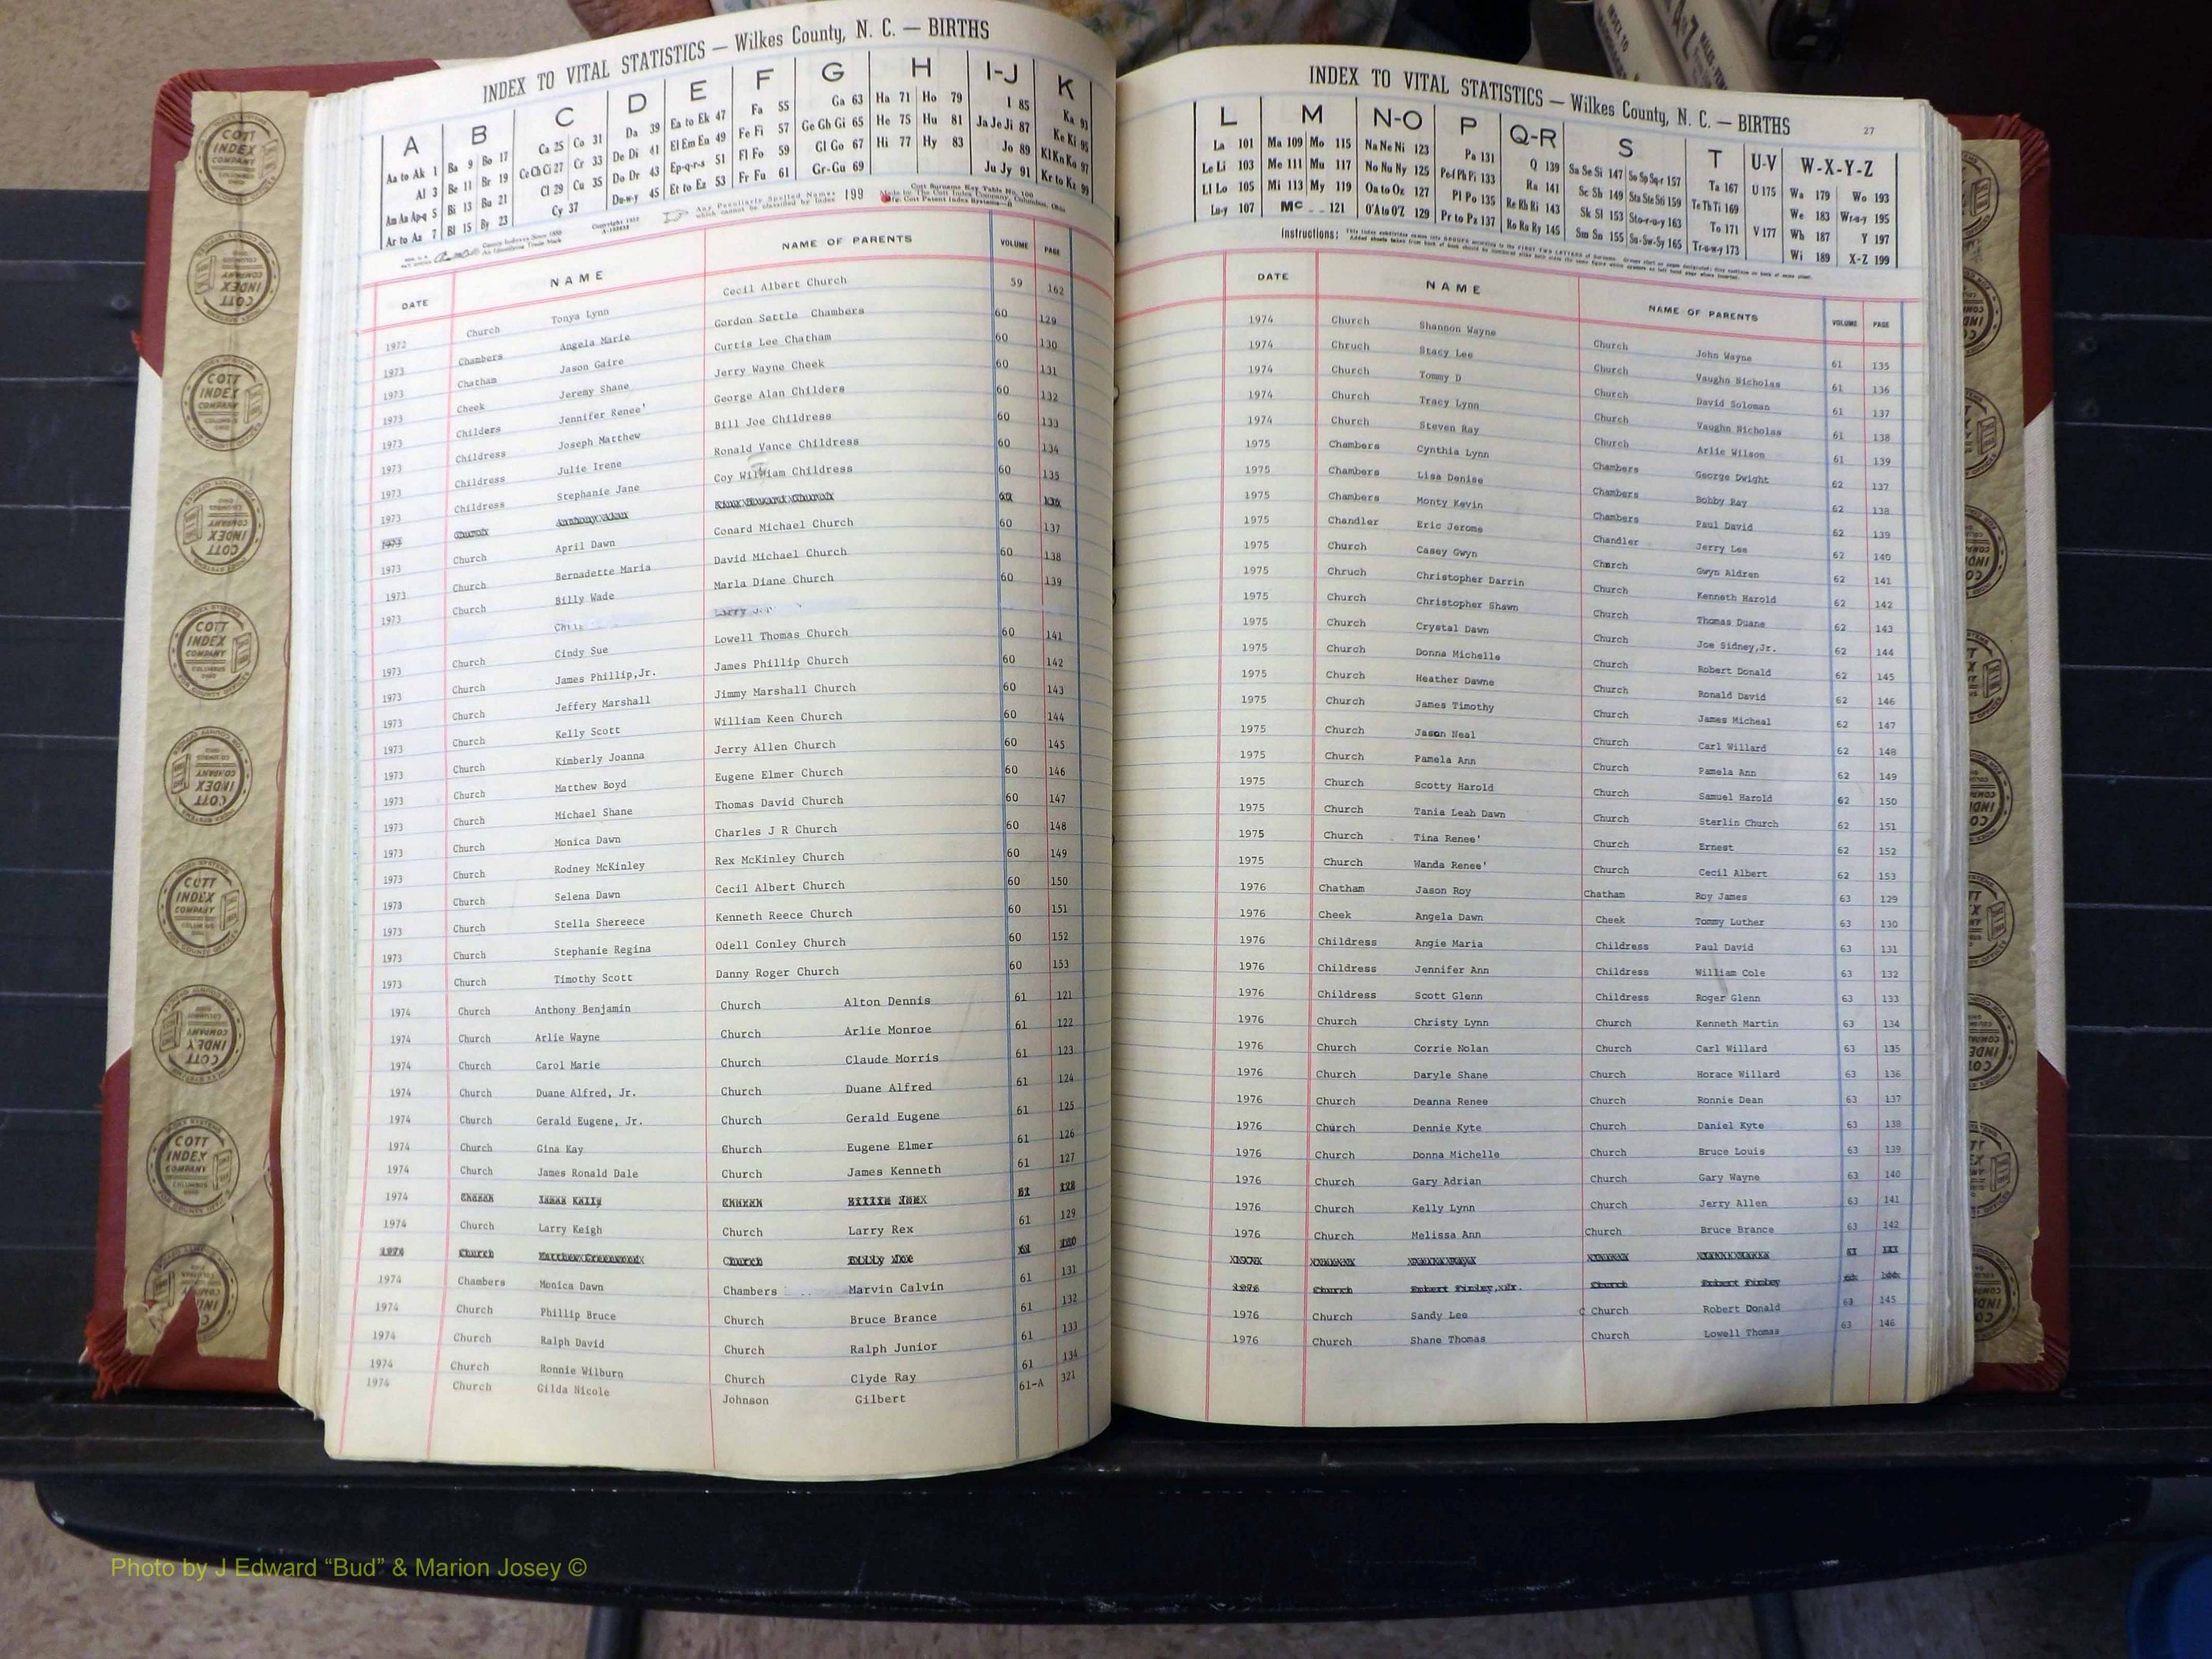 INDEX TO VITAL STATISTICS — Wilkes County, N. C. — BIRTHS
A B C D E F G H I-J K
Aa to Ak 1 Ba 9 Bo 17 Ca 25 Co 31 Da 39 Ea to Ek 47 Fa 55 Ga 63 Ha 71 Ho 79 I 85 Ka 93
Al 3 Be 11 Br 19 Ce Ch Ci 27 Cr 33 De Di 41 El Em En 49 Fe Fi 57 Ge Gh Gi 65 He 75 Hu 81 Ja Je Ji 87 Ke Ki 95
Am An Ap-q 5 Bi 13 Bu 21 Cl 29 Cu 35 Do Dr 43 Ep-q-r-s 51 Fl Fo 59 Gl Go 67 Hi 77 Hy 83 Jo 89 Kl Kn Ko 97
Ar to Az 7 Bl 15 By 23 Cy 37 Du-w-y 45 Et to Ez 53 Fr Fu 61 Gr-Gu 69 Ju Jy 91 Kr to Kz 99
Any Peculiarly Spelled Names which cannot be classified by Index 199
DATE NAME NAME OF PARENTS VOLUME PAGE
1972 Church Tonya Lynn Cecil Albert Church 59 162
1973 Chambers Angela Marie Gordon Settle Chambers 60 129
1973 Chatham Jason Gaire Curtis Lee Chatham 60 130
1973 Cheek Jeremy Shane Jerry Wayne Cheek 60 131
1973 Childers Jennifer Renee' George Alan Childers 60 132
1973 Childress Joseph Matthew Bill Joe Childress 60 133
1973 Childress Julie Irene Ronald Vance Childress 60 134
1973 Childress Stephanie Jane Coy William Childress 60 135
1973 Church
1973 Church April Dawn Conard Michael Church 60 137
1973 Church Bernadette Maria David Michael Church 60 138
1973 Church Billy Wade Marla Diane Church 60 139
1973 Church Cindy Sue Lowell Thomas Church 60 141
1973 Church James Phillip,Jr. James Phillip Church 60 142
1973 Church Jeffery Marshall Jimmy Marshall Church 60 143
1973 Church Kelly Scott William Keen Church 60 144
1973 Church Kimberly Joanna Jerry Allen Church 60 145
1973 Church Matthew Boyd Eugene Elmer Church 60 146
1973 Church Michael Shane Thomas David Church 60 147
1973 Church Monica Dawn Charles J R Church 60 148
1973 Church Rodney McKinley Rex McKinley Church 60 149
1973 Church Selena Dawn Cecil Albert Church 60 150
1973 Church Stella Shereece Kenneth Reece Church 60 151
1973 Church Stephanie Regina Odell Conley Church 60 152
1973 Church Timothy Scott Danny Roger Church 60 153
1974 Church Anthony Benjamin Church Alton Dennis 61 121
1974 Church Arlie Wayne Church Arlie Monroe 61 122
1974 Church Carol Marie Church Claude Morris 61 123
1974 Church Duane Alfred, Jr. Church Duane Alfred 61 124
1974 Church Gerald Eugene, Jr. Church Gerald Eugene 61 125
1974 Church Gina Kay Church Eugene Elmer 61 126
1974 Church James Ronald Dale Church James Kenneth 61 127
1974
1974 Church Larry Keigh Church Larry Rex 61 129
1974 Church Church
1974 Chambers Monica Dawn Chambers Marvin Calvin 61 131
1974 Church Phillip Bruce Church Bruce Brance 61 132
1974 Church Ralph David Church Ralph Junior 61 133
1974 Church Ronnie Wilburn Church Clyde Ray 61 134
1974 Church Gilda Nicole Johnson Gilbert 61-A 321
INDEX TO VITAL STATISTICS — Wilkes County, N. C. — BIRTHS 27
L M N-O P Q-R S T U-V W-X-Y-Z
La 101 Ma 109 Mo 115 Na Ne Ni 123 Pa 131 Q 139 Sa Se Si 147 So Sp Sq-r 157 Ta 167 U 175 Wa 179 Wo 193
Le Li 103 Me 111 Mu 117 No Nu Ny 125 Pe-f Ph Pi 133 Ra 141 Sc Sh 149 Sta Ste Sti 159 Te Th Ti 169 We 183 Wr-u-y 195
Ll Lo 105 Mi 113 My 119 Oa to Oz 127 Pl Po 135 Re Rh Ri 143 Sk Sl 153 Sto-r-u-y 163 To 171 V 177 Wh 187 Y 197
Lu-y 107 Mc 121 O'A to O'Z 129 Pr to Pz 137 Ro Ru Ry 145 Sm Sn 155 Su-Sw-Sy 165 Tr-u-w-y 173 Wi 189 X-Z 199
Instructions:
DATE NAME NAME OF PARENTS VOLUME PAGE
1974 Church Shannon Wayne Church John Wayne 61 135
1974 Chruch Stacy Lee Church Vaughn Nicholas 61 136
1974 Church Tommy D Church David Soloman 61 137
1974 Church Tracy Lynn Church Vaughn Nicholas 61 138
1974 Church Steven Ray Church Arlie Wilson 61 139
1975 Chambers Cynthia Lynn Chambers George Dwight 62 137
1975 Chambers Lisa Denise Chambers Bobby Ray 62 138
1975 Chambers Monty Kevin Chambers Paul David 62 139
1975 Chandler Eric Jerome Chandler Jerry Lee 62 140
1975 Church Casey Gwyn Church Gwyn Aldren 62 141
1975 Chruch Christopher Darrin Church Kenneth Harold 62 142
1975 Church Christopher Shawn Church Thomas Duane 62 143
1975 Church Crystal Dawn Church Joe Sidney,Jr. 62 144
1975 Church Donna Michelle Church Robert Donald 62 145
1975 Church Heather Dawne Church Ronald David 62 146
1975 Church James Timothy Church James Micheal 62 147
1975 Church Jason Neal Church Carl Willard 62 148
1975 Church Pamela Ann Church Pamela Ann 62 149
1975 Church Scotty Harold Church Samuel Harold 62 150
1975 Church Tania Leah Dawn Church Sterlin Church 62 151
1975 Church Tina Renee' Church Ernest 62 152
1975 Church Wanda Renee' Church Cecil Albert 62 153
1976 Chatham Jason Roy Chatham Roy James 63 129
1976 Cheek Angela Dawn Cheek Tommy Luther 63 130
1976 Childress Angie Maria Childress Paul David 63 131
1976 Childress Jennifer Ann Childress William Cole 63 132
1976 Childress Scott Glenn Childress Roger Glenn 63 133
1976 Church Christy Lynn Church Kenneth Martin 63 134
1976 Church Corrie Nolan Church Carl Willard 63 135
1976 Church Daryle Shane Church Horace Willard 63 136
1976 Church Deanna Renee Church Ronnie Dean 63 137
1976 Church Dennie Kyte Church Daniel Kyte 63 138
1976 Church Donna Michelle Church Bruce Louis 63 139
1976 Church Gary Adrian Church Gary Wayne 63 140
1976 Church Kelly Lynn Church Jerry Allen 63 141
1976 Church Melissa Ann Church Bruce Brance 63 142
1976 Church Church
1976 Church Sandy Lee Church Robert Donald 63 145
1976 Church Shane Thomas Church Lowell Thomas 63 146
COTT INDEX COMPANY
Photo by J Edward “Bud” & Marion Josey ©